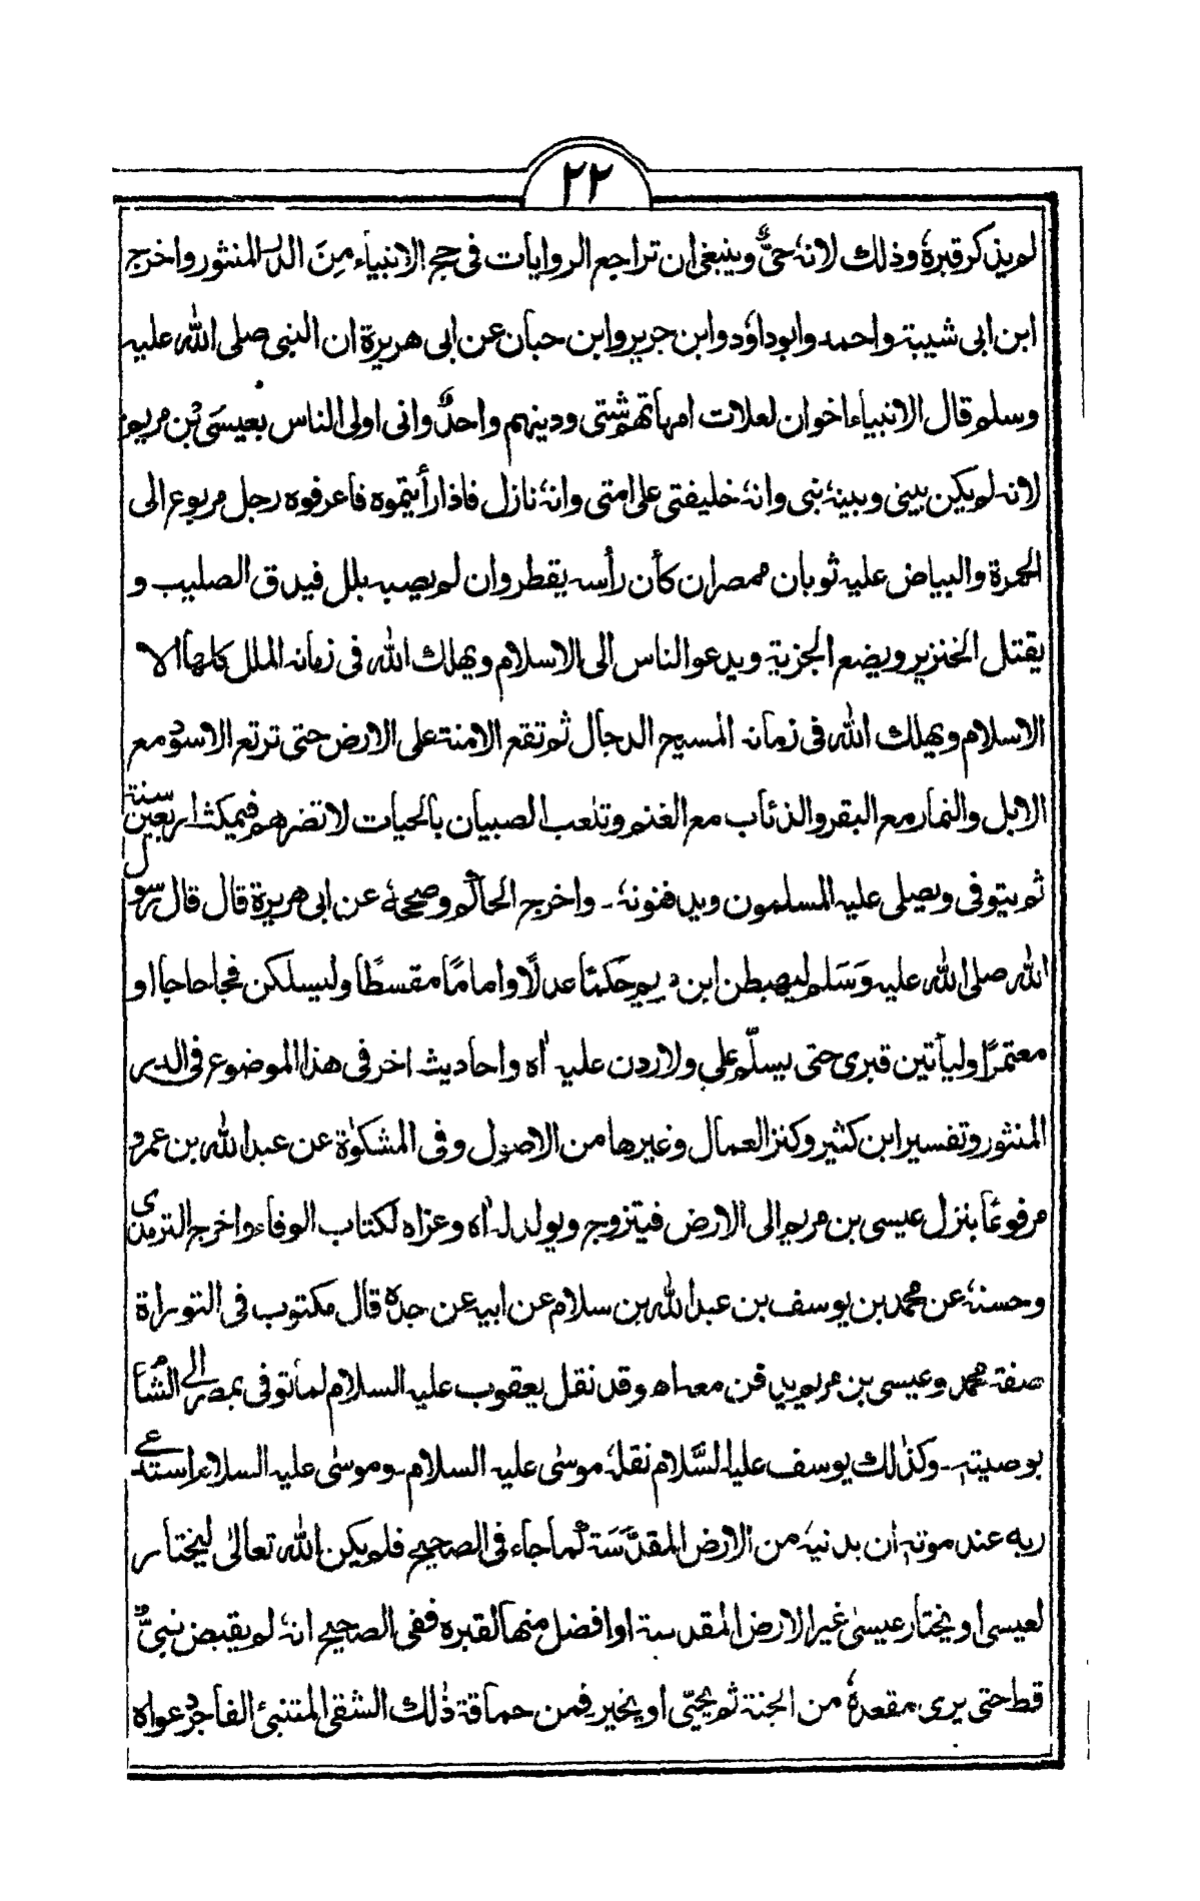 ٢٢
لم يذكر قبرهٗ وذلك لانهٗ حیٌّ وينبغی ان تراجع الروايات فی حج الانبياء مِنَ الدر المنثور واخرج
ابن ابی شيبة واحمد وابوداؤد وابن جرير وابن حبان عن ابی هريرة ان النبی صلی الله عليه
وسلم قال الانبياء اخوان لعلات امهاتهم شتی ودينهم واحدٌ وانی اولی الناس بعيسَی بْن مريم
لانه لم يكن بينی وبينهٗ نبی وانهٗ خليفتی علی امتی وانهٗ نازل فاذا رأيتموه فاعرفوه رجل مربوع الی
الحمرة والبياض عليه ثوبان ممصران كأن رأسه يقطر وان لم يصبه بلل فيدق الصليب و
يقتل الخنزير ويضع الجزية ويدعو الناس الی الاسلام ويهلك الله فی زمانه الملل كلها الا
الاسلام ويهلك الله فی زمانه المسيح الدجال ثم تقع الامنة علی الارض حتی ترتع الاسود مع
الابل والنمار مع البقر والذئاب مع الغنم وتلعب الصبيان بالحيات لا تضرهم فيمكث اربعين سنة
ثم يتوفی ويصلی عليه المسلمون ويدفنونهٗ ۔ واخرج الحاكم وصححهٗ عن ابی هريرة قال قال رسول
الله صلی الله عليه وَسَلم ليهبطن ابن مريم حَكمًا عدلًا واماما مقسطًا وليسلكن فجا حاجا او
معتمرًا وليأتين قبری حتی يسلّم علی ولاردن عليه اٰه واحاديث اخر فی هذا الموضوع فی الدر
المنثور وتفسير ابن كثير وكنز العمال وغيرها من الاصول وفی المشكوٰة عن عبد الله بن عمرو
مرفوعًا ينزل عيسی بن مريم الی الارض فيتزوج ويولد لهٗ اه وعزاه لكتاب الوفاء واخرج الترمذی
وحسنهٗ عن محمد بن يوسف بن عبد الله بن سلام عن ابيه عن جده قال مكتوب فی التوراة
صفة محمد وعيسی بن مريم يدفن معه اه وقد نقل يعقوب عليه السلام لما توفی بمصر الی الشام
بوصيتهٖ ۔ وكذٰلك يوسف عليه السَّلام نقلهٗ موسٰی عليه السلام ۔ وموسٰی عليه السلام استدعی
ربه عند موتهٖ ان يدنيهٗ من الارض المقدَّسَة كما جاء فی الصحيح فلم يكن الله تعالٰی ليختار
لعيسی او يختار عيسٰی غير الارض المقدسة او افضل منها لقبره ففی الصحيح انهٗ لم يقبض نبیٌّ
قط حتی يری مقعدهٗ من الجنة ثم يحيّی او يخير فمن حماقة ذٰلك الشقی المتنبئ الفاجر دعواه